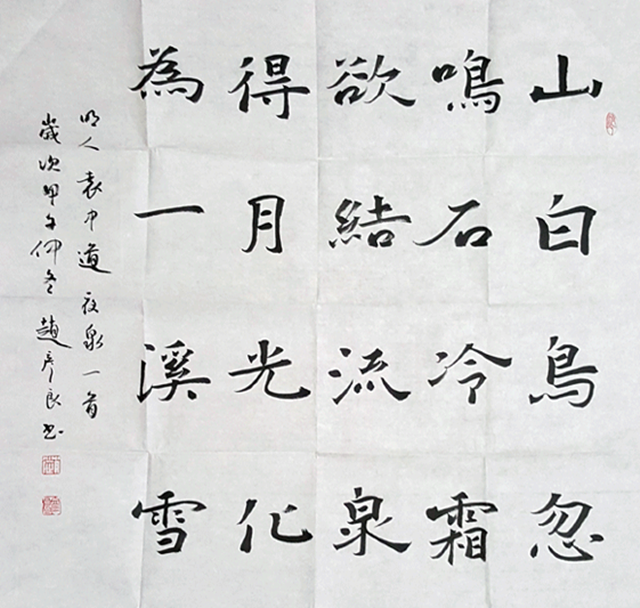 山白鳥忽
鳴石冷霜
欲結流泉
得月光化
為一溪雪
明人袁中道夜泉一首
歲次甲午仲冬趙彥良書